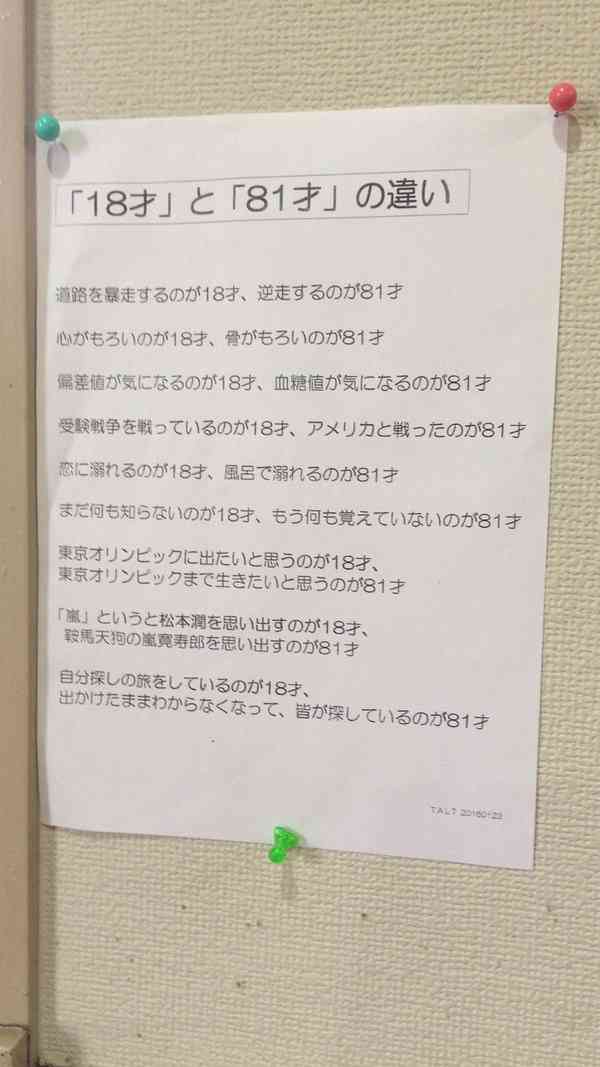 「18才」と「81才」の違い
道路を暴走するのが18才、逆走するのが81才
心がもろいのが18才、骨がもろいのが81才
偏差値が気になるのが18才、血糖値が気になるのが81才
受験戦争を戦っているのが18才、アメリカと戦ったのが81才
恋に溺れるのが18才、風呂で溺れるのが81才
まだ何も知らないのが18才、もう何も覚えていないのが81才
東京オリンピックに出たいと思うのが18才、
東京オリンピックまで生きたいと思うのが81才
「嵐」というと松本潤を思い出すのが18才、
鞍馬天狗の嵐寛寿郎を思い出すのが81才
自分探しの旅をしているのが18才、
出かけたままわからなくなって、皆が探しているのが81才